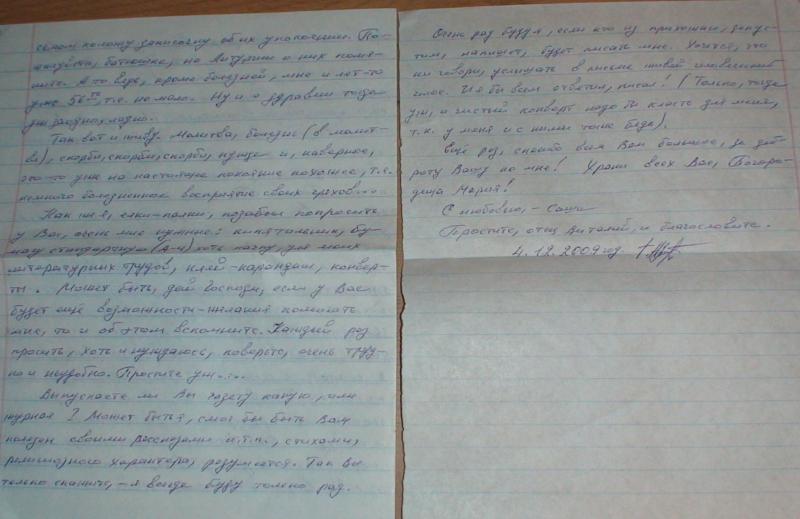 самом начале записочку об их упокоении. По-
жалуйста, батюшка, на литургии о них помя-
ните. А то ведь, кроме болезней, мне и лет-то
уже 56-ть, т.е. не мало. Ну и о здравии тогда
уж заодно, ладно.
Так вот и живу. Молитва, болезнь (в молит-
ве), скорби, скорби, скорби, пуще и, наверное,
это-то уже на настоящее покаяние похоже, т.е.
немного болезненное восприятие своих грехов...
Как же я, елки-палки, позабыл попросить
у Вас, очень мне нужные: кипятильник, бу-
магу стандартную (А-4) хоть пачку, для моих
литературных трудов, клей-карандаш, конвер-
ты. Может быть, дай Господи, если у Вас
будет ещё возможность-желания помогать
мне, то и об этом вспомните. Каждый раз
просить, хоть и нуждаюсь, поверьте, очень труд-
но и неудобно. Простите уж....
Выпускаете ли Вы газету какую, или
журнал? Может быть я, смог бы быть Вам
полезен своими рассказами и.т.п., стихами,
религиозного характера, разумеется. Так Вы
только скажите, - я всегда буду только рад.
Очень рад буду я, если кто из прихожан, допус-
тим, напишет, будет писать мне. Хочется, что
ни говори, услышать в письме живой человеческий
голос. И я бы всем ответил, писал! (Только, тогда
уж, и чистый конверт надо бы класть для меня,
т.к. у меня и с ними тоже беда).
Ещё раз, спасибо всем Вам большое, за доб-
роту Вашу ко мне! Храни всех Вас, Богоро-
дица Мария!
С любовью, - Саша
Простите, отец Виталий, и благословите.
4.12.2009 год.